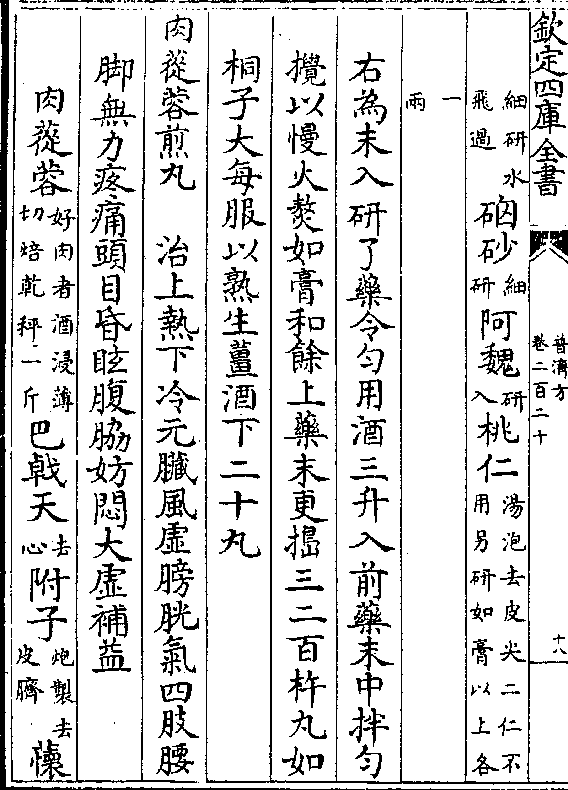 欽定四庫全書
普濟方
卷二百二十
十八
細研水飛過硇砂細研阿魏研入桃仁湯泡去皮尖二仁不用另研如膏以上各
一兩
右為末入研了藥令勻用酒三升入前藥末中拌勻
攪以慢火熬如膏和餘上藥末更搗三二百杵丸如
桐子大每服以熟生薑酒下二十丸
肉蓯蓉煎丸 治上熱下冷元臟風虛膀胱氣四肢腰
脚無力疼痛頭目昏眩腹脇妨悶大虛補益
肉蓯蓉好肉者酒浸薄切焙乾秤一斤巴戟天去心附子炮製去皮臍懷